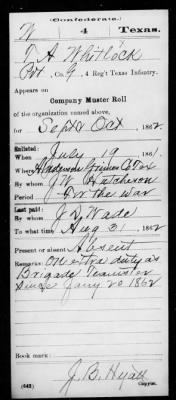 (Confederate.)
W 4 Texas.
T A Whitlock
Pvt, Co. G, 4 Reg't Texas Infantry.
Appears on
Company Muster Roll
of the organization named above,
for Sept & Oct, 1862.
Enlisted:
When July 19, 1861.
Where Anderson Grimes Co Tex
By whom J. W. Hutcheson
Period for the war
Last paid:
By whom J. D. Wade
To what time Aug 31, 1862
Present or absent Absent
Remarks: On extra duty as
Brigade Teamster
since Jany 20 1862
Book mark:
J. B. Hyatt
(642) Copyist.